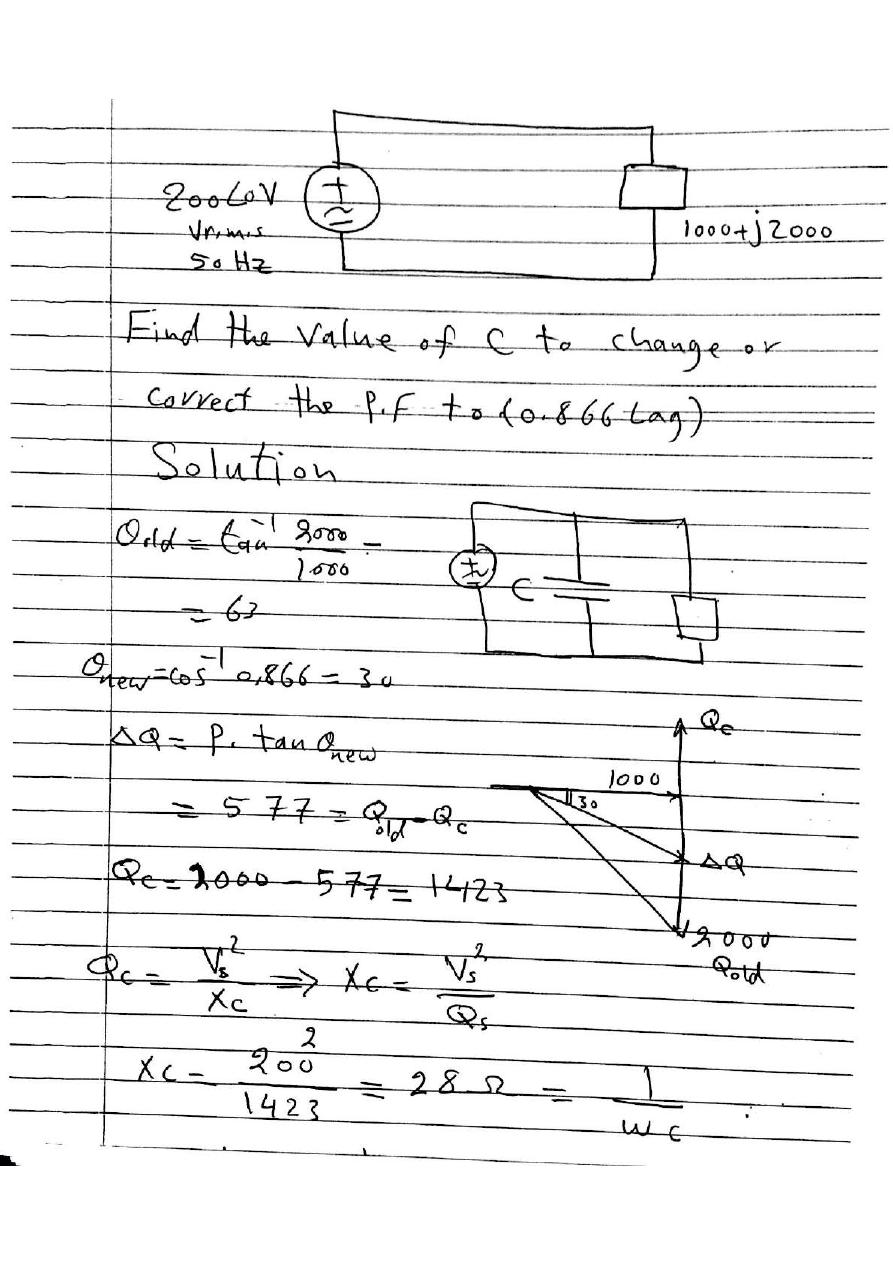 200∠0V
Vr.m.s
50 Hz
1000+j2000
Find the Value of C to change or
correct the P.F to (0.866 Lag)
Solution
θold = tan⁻¹ 2000/1000 =
= 63
C
θnew = cos⁻¹ 0,866 = 30
ΔQ = P. tan θnew
Qc
1000
30
= 577 = Qold - Qc
ΔQ
Qc = 2000 - 577 = 1423
2000
Qold
Qc = Vs²/Xc ⟹ Xc = Vs²/Qs
Xc = 200²/1423 = 28 Ω = 1/wc